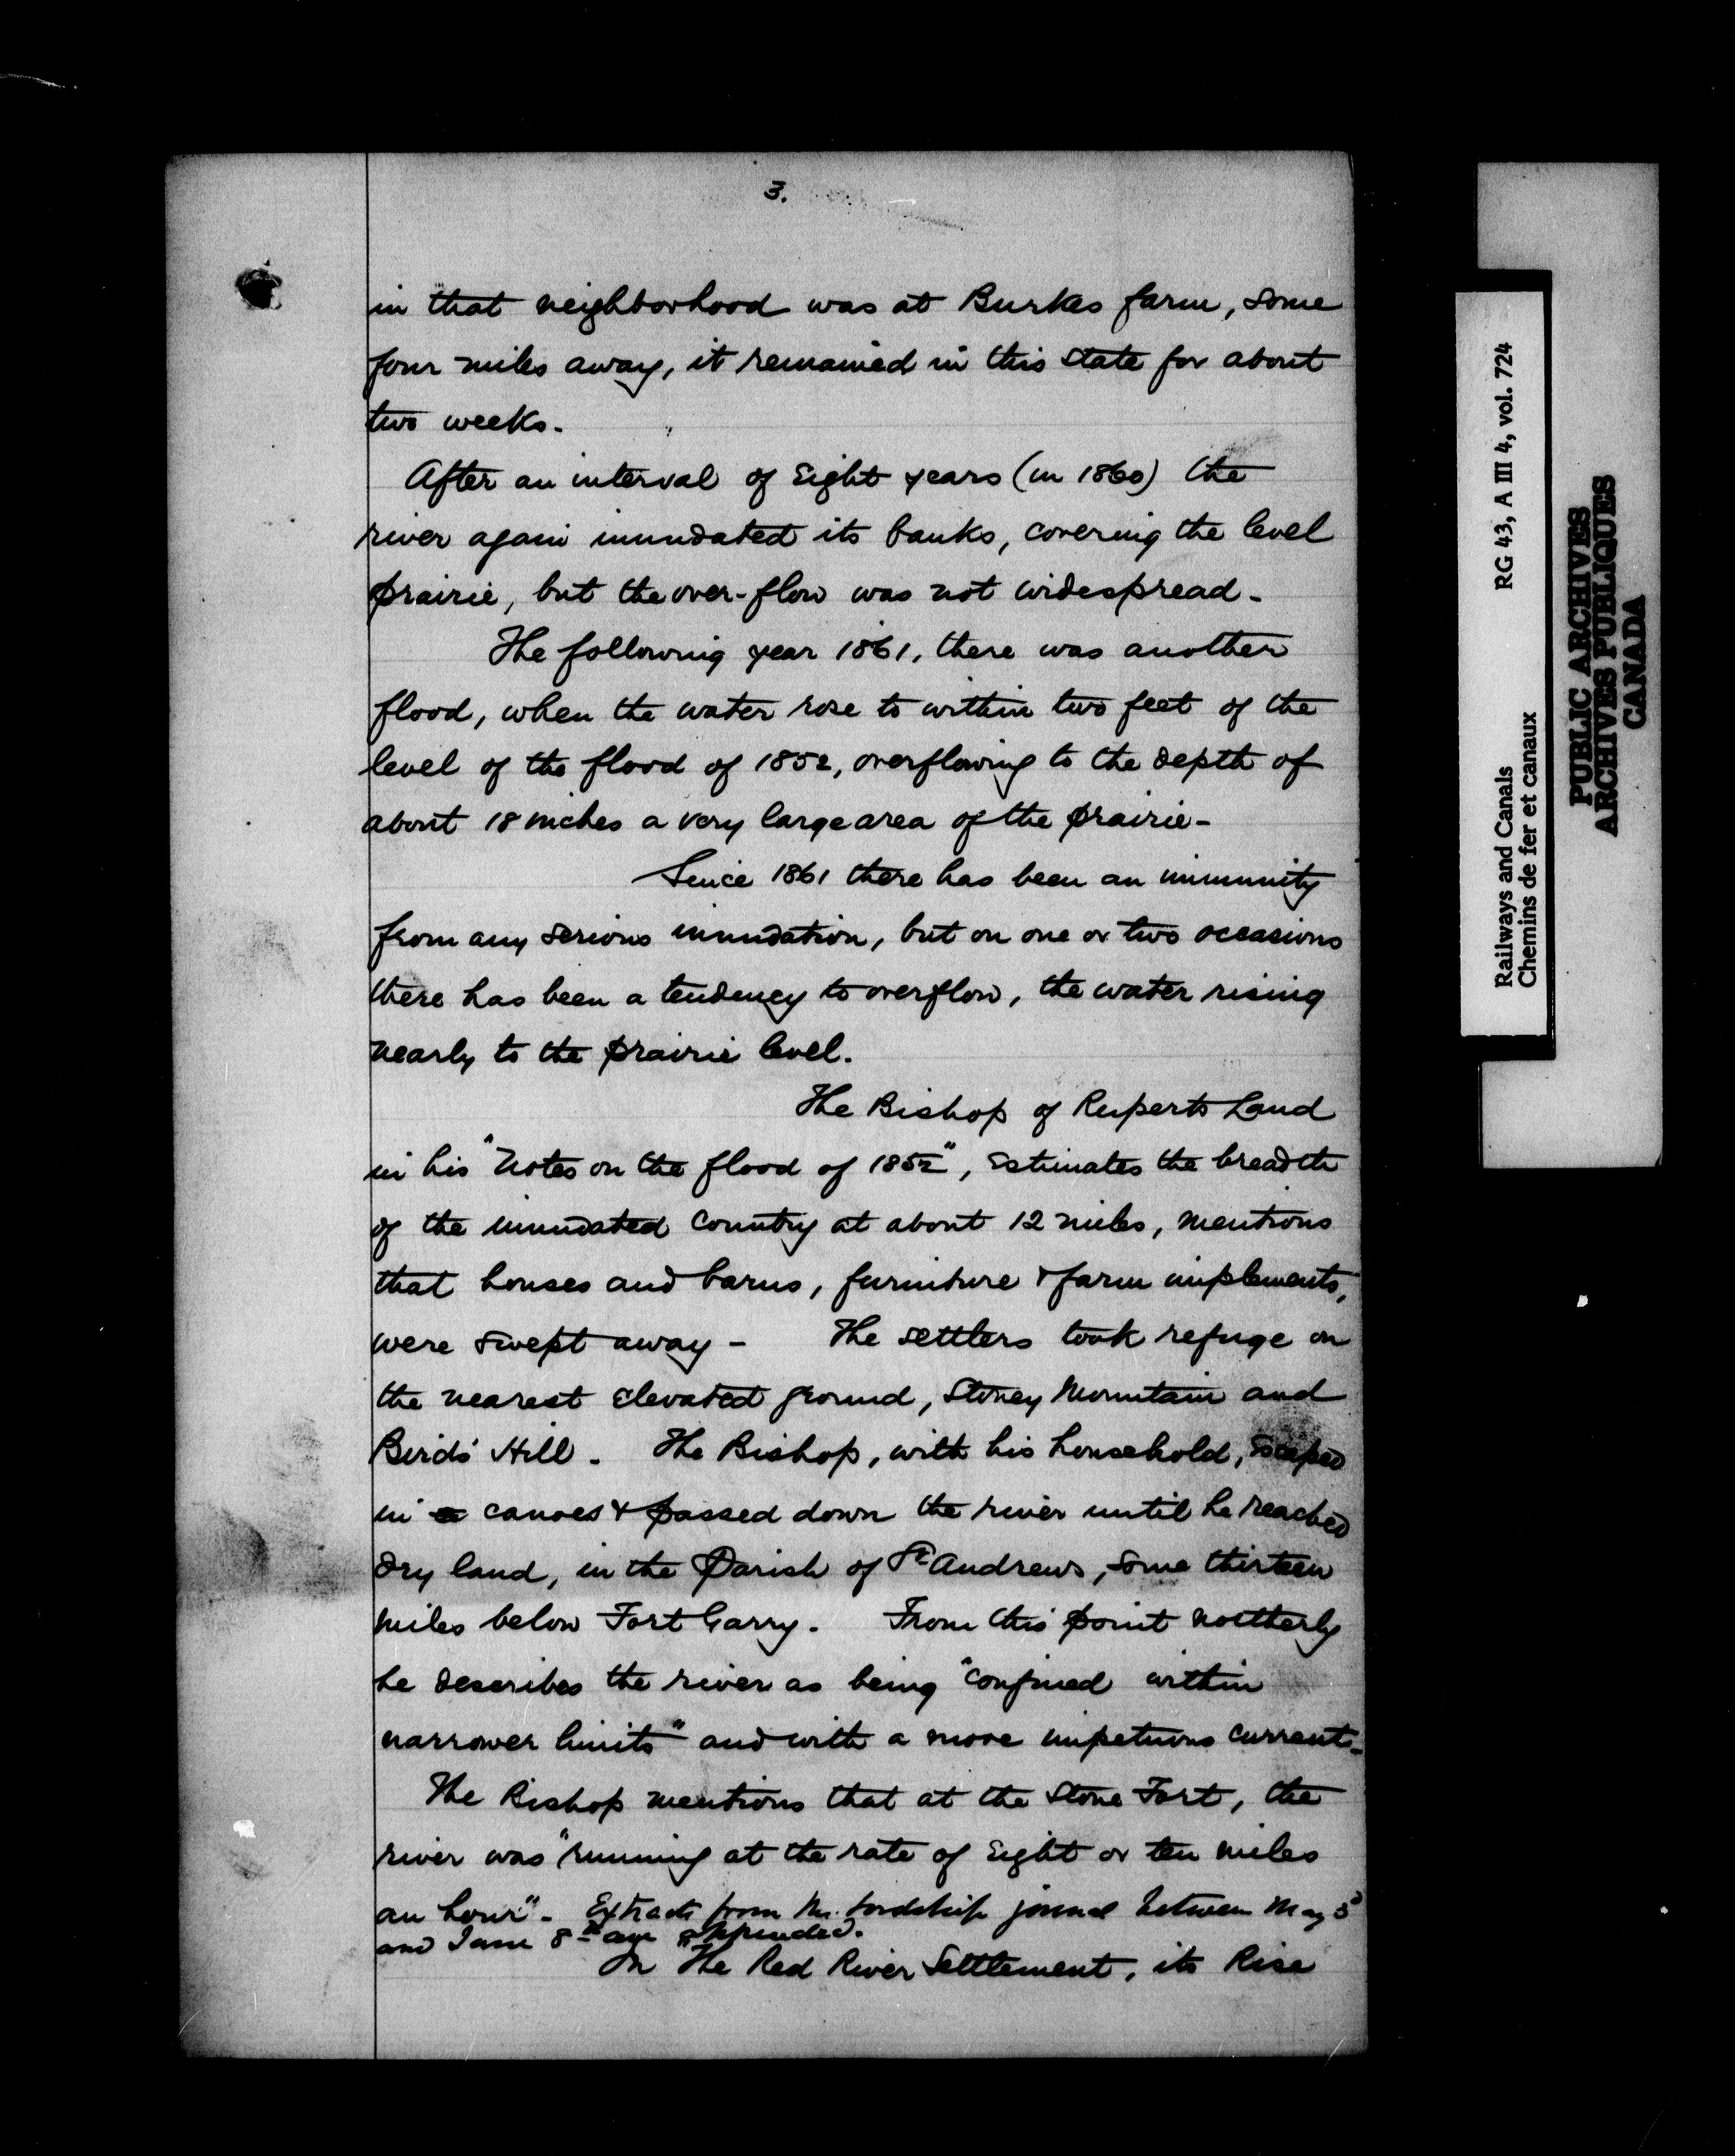 3.
in that neighborhood was at Burkes farm, some
four miles away, it remained in this state for about
two weeks.
After an interval of Eight years (in 1860) the
river again inundated its banks, covering the level
prairie, but the over-flow was not widespread.
The following year 1861, there was another
flood, when the water rose to within two feet of the
level of the flood of 1852, overflowing to the depth of
about 18 inches a very large area of the prairie -
Since 1861 there has been an immunity
from any serious inundation, but on one or two occasions
there has been a tendency to overflow, the water rising
nearly to the prairie level.
The Bishop of Ruperts Land
in his "Notes on the flood of 1852", Estimates the breadth
of the inundated Country at about 12 miles, mentions
that houses and barns, furniture & farm implements,
were swept away - The settlers took refuge on
the nearest Elevated ground, Stoney Mountain and
Birds' Hill. The Bishop, with his household, Escaped
in canoes & passed down the river until he reached
dry land, in the Parish of St Andrews, some thirteen
miles below Fort Garry. From this point northerly
he describes the river as being "confined within
narrower limits" and with a more impetuous current.
The Bishop mentions that at the Stone Fort, the
river was "running at the rate of Eight or ten miles
an hour". Extracts from his Lordship journal between May 3d
and June 8th are appended.
In The Red River Settlement, its Rise
Railways and Canals RG 43, A III 4, vol. 724
Chemins de fer et canaux
PUBLIC ARCHIVES
ARCHIVES PUBLIQUES
CANADA